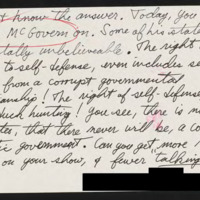 I know the answer. Today, you
McGovern on. Some of his state
tally unbelievable. The right
to self-defense, even includes se
from a corrupt governmental
anship! The right of self-defense
uck hunting! You see, there is n
tes, that there never will be, a co
ic government. Can you get more
on your show, & fewer "talking